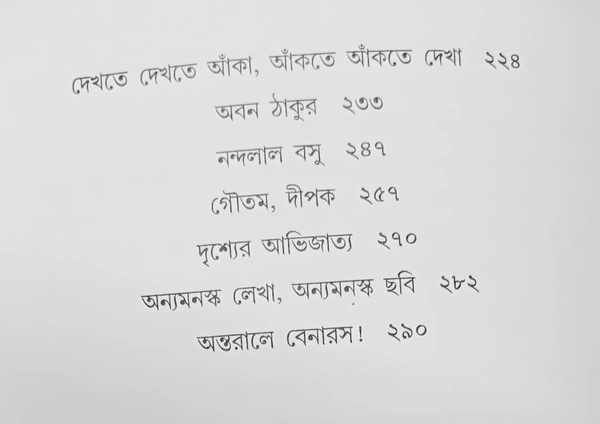 দেখতে দেখতে আঁকা, আঁকতে আঁকতে দেখা ২২৪
অবন ঠাকুর ২৩৩
নন্দলাল বসু ২৪৭
গৌতম, দীপক ২৫৭
দৃশ্যের আভিজাত্য ২৭০
অন্যমনস্ক লেখা, অন্যমনস্ক ছবি ২৮২
অন্তরালে বেনারস! ২৯০